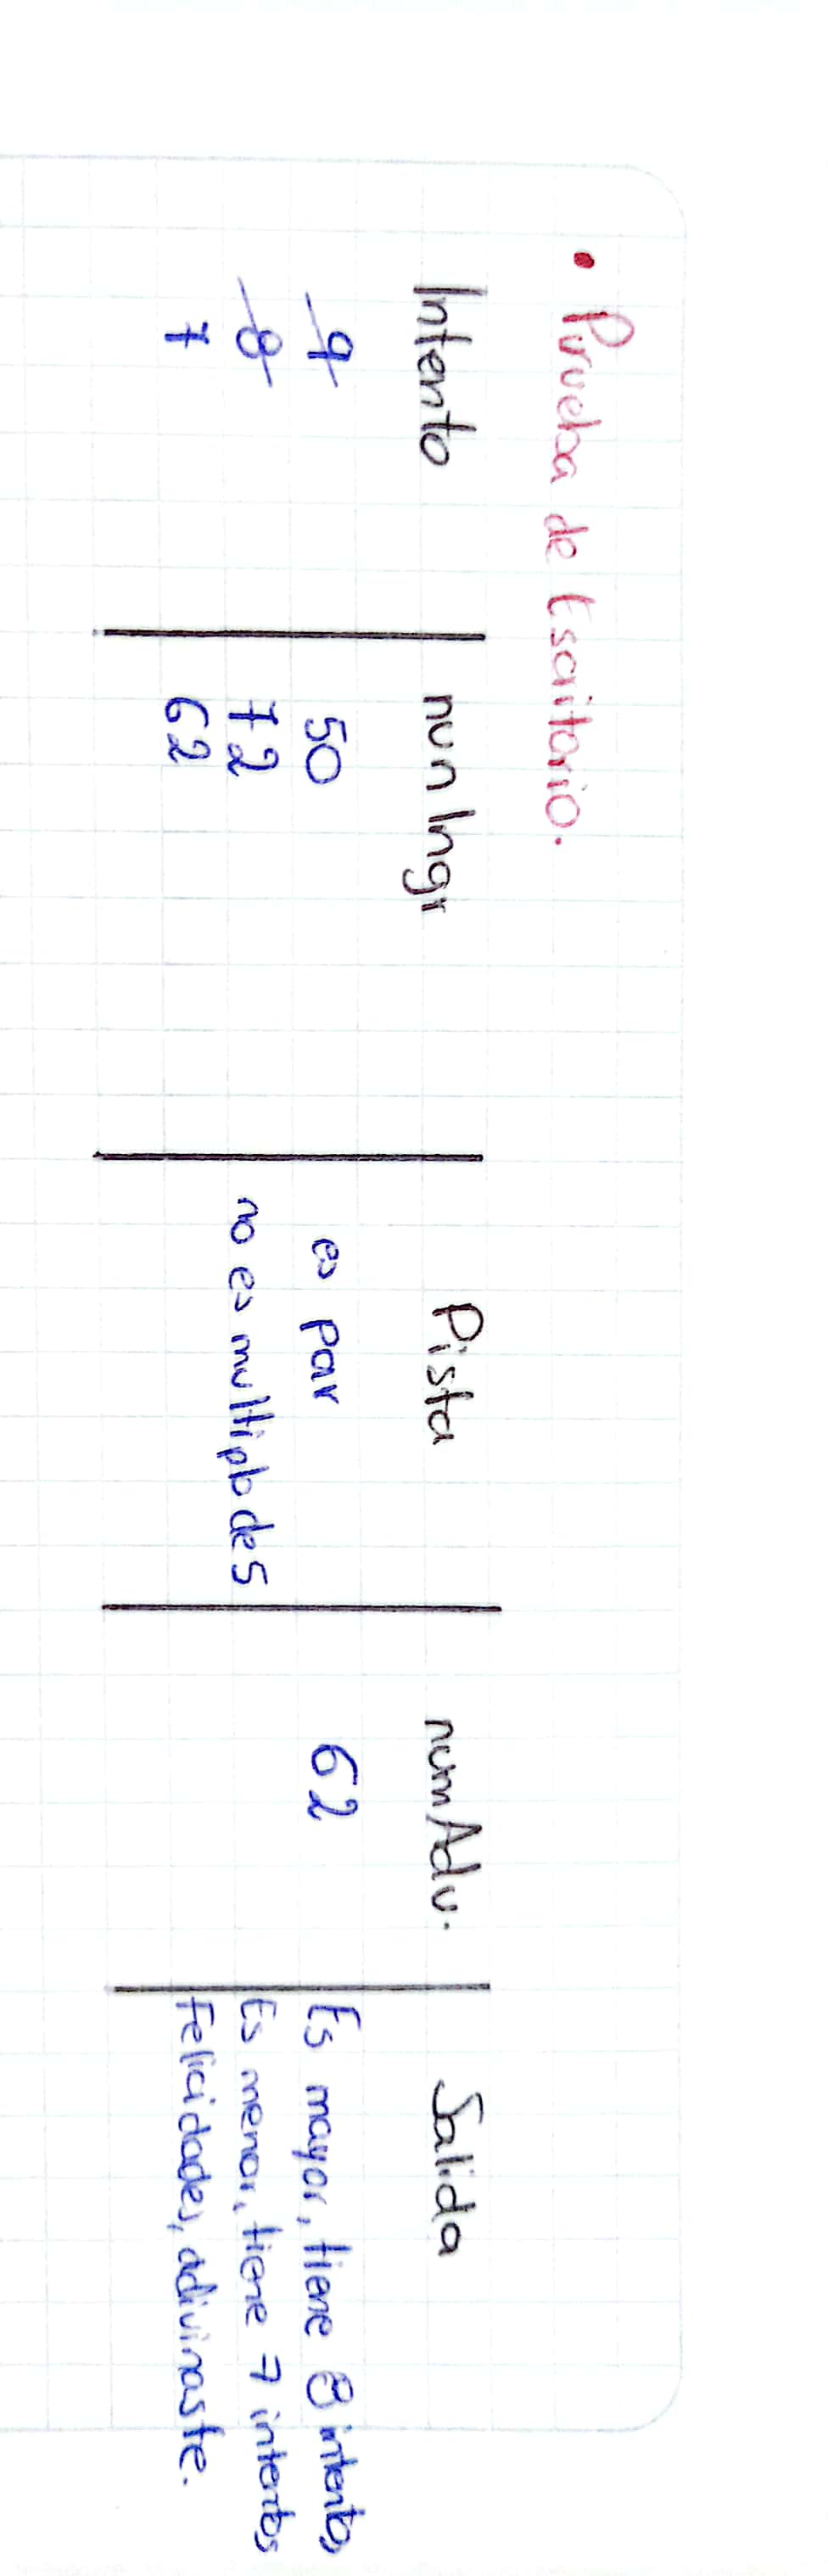 • Prueba de Escritorio.
Intento nun Ingr Pista numAdv. Salida
9 50 es par 62 Es mayor, tiene 8 intentos
8 72 no es multiplo de 5 Es menor, tiene 7 intentos
7 62 Felicidades, adivinaste.